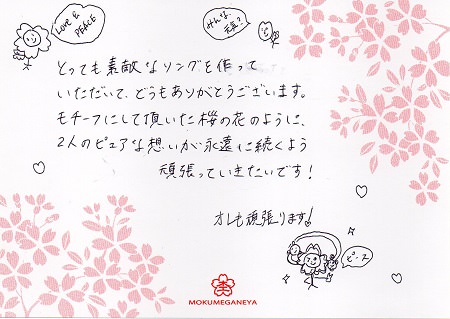 Love &
PEACE
みんな
元気?
とっても素敵なリングを作って
いただいて、どうもありがとうございます。
モチーフにして頂いた桜の花のように、
2人のピュアな想いが永遠に続くよう
頑張っていきたいです!
オレも頑張ります!
ピース
MOKUMEGANEYA